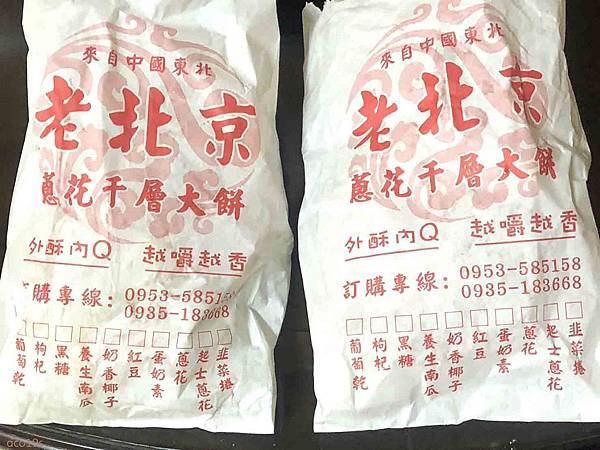 來自中國東北
老北京
蔥花千層大餅
外酥內Q 越嚼越香
訂購專線：0953-585158
0935-183668
□葡萄乾 □枸杞 □黑糖 □養生南瓜 □奶香椰子 □紅豆 □蛋奶素 □蔥花 □起士蔥花 □韭菜捲
來自中國東北
老北京
蔥花千層大餅
外酥內Q 越嚼越香
訂購專線：0953-585158
0935-183668
□葡萄乾 □枸杞 □黑糖 □養生南瓜 □奶香椰子 □紅豆 □蛋奶素 □蔥花 □起士蔥花 □韭菜捲